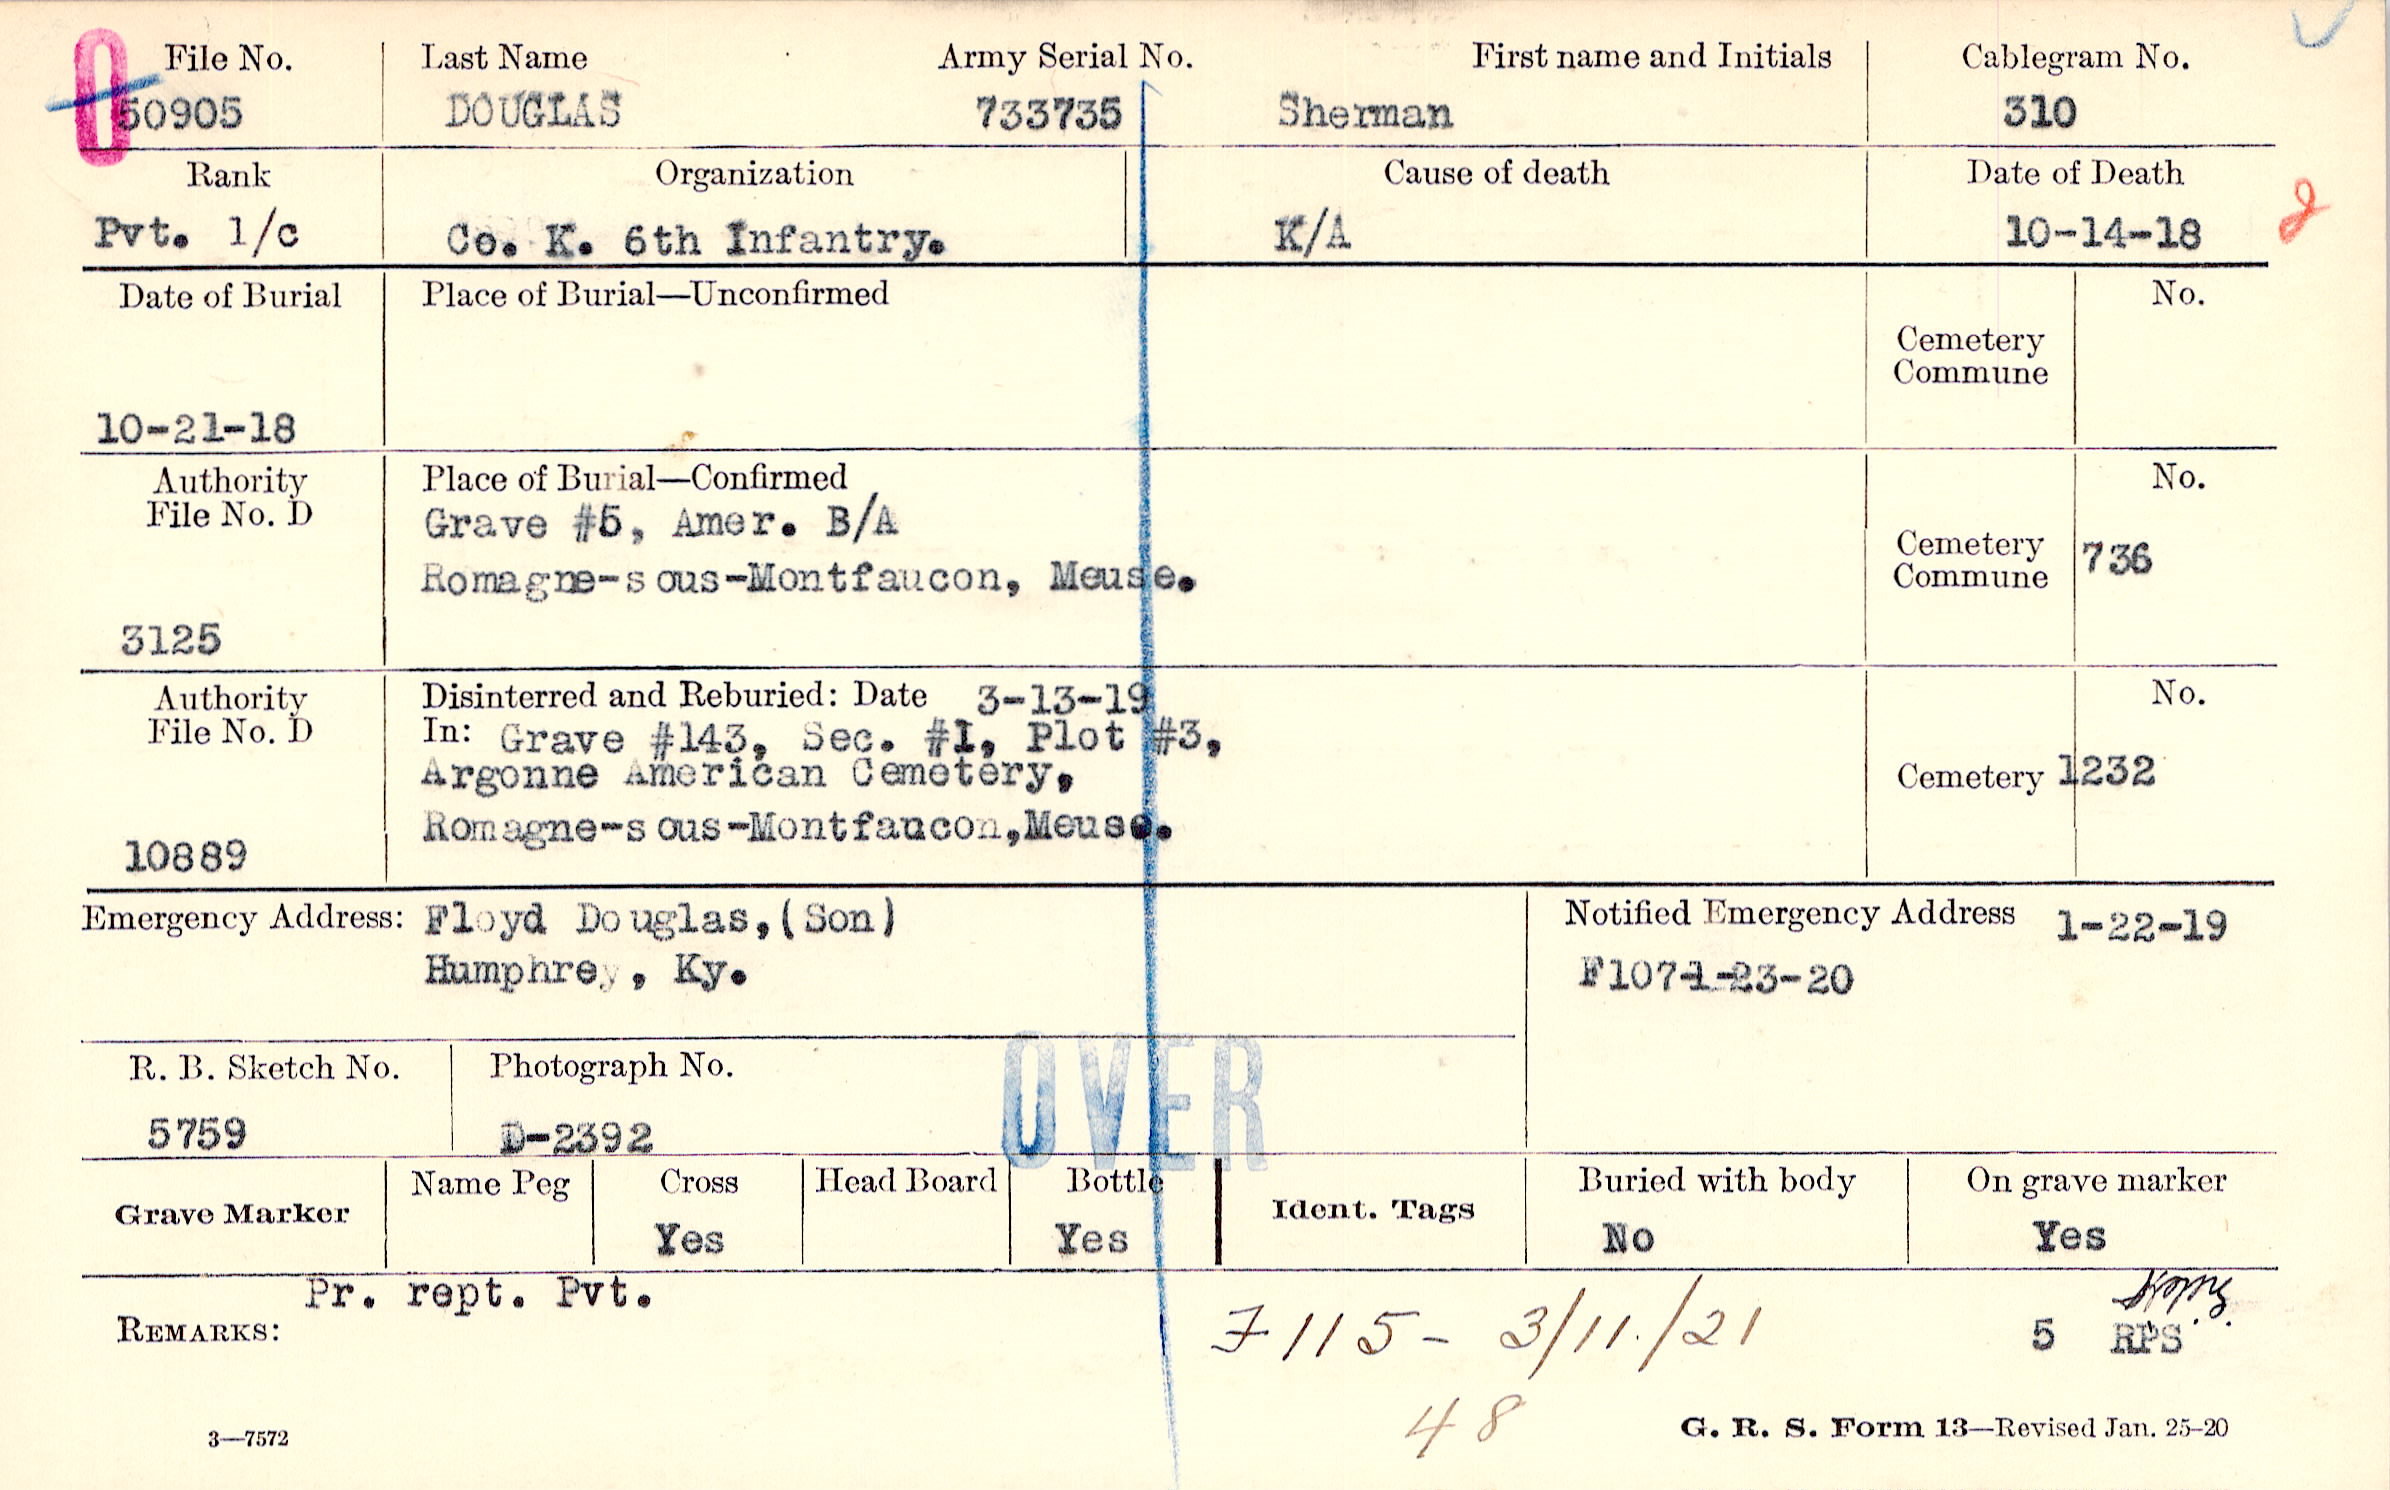 File No. Last Name Army Serial No. First name and Initials Cablegram No.
0 50905 DOUGLAS 733735 Sherman 310
Rank Organization Cause of death Date of Death
Pvt. 1/c Co. K. 6th Infantry. K/A 10-14-18
Date of Burial Place of Burial—Unconfirmed No.
Cemetery
Commune
10-21-18
Authority Place of Burial—Confirmed No.
File No. D Grave #5, Amer. B/A
Cemetery 736
Commune
Romagne-sous-Montfaucon, Meuse.
3125
Authority Disinterred and Reburied: Date 3-13-19 No.
File No. D In: Grave #143, Sec. #1, Plot #3,
Argonne American Cemetery, Cemetery 1232
Romagne-sous-Montfaucon,Meuse.
10889
Emergency Address: Floyd Douglas,(Son) Notified Emergency Address 1-22-19
Humphrey, Ky. F107-1-23-20
R. B. Sketch No. Photograph No. OVER
5759 D-2392
Grave Marker Name Peg Cross Head Board Bottle Ident. Tags Buried with body On grave marker
Yes Yes No Yes
Pr. rept. Pvt.
REMARKS: F115- 3/11./21 5 RPS
48
3—7572 G. R. S. Form 13—Revised Jan. 25-20